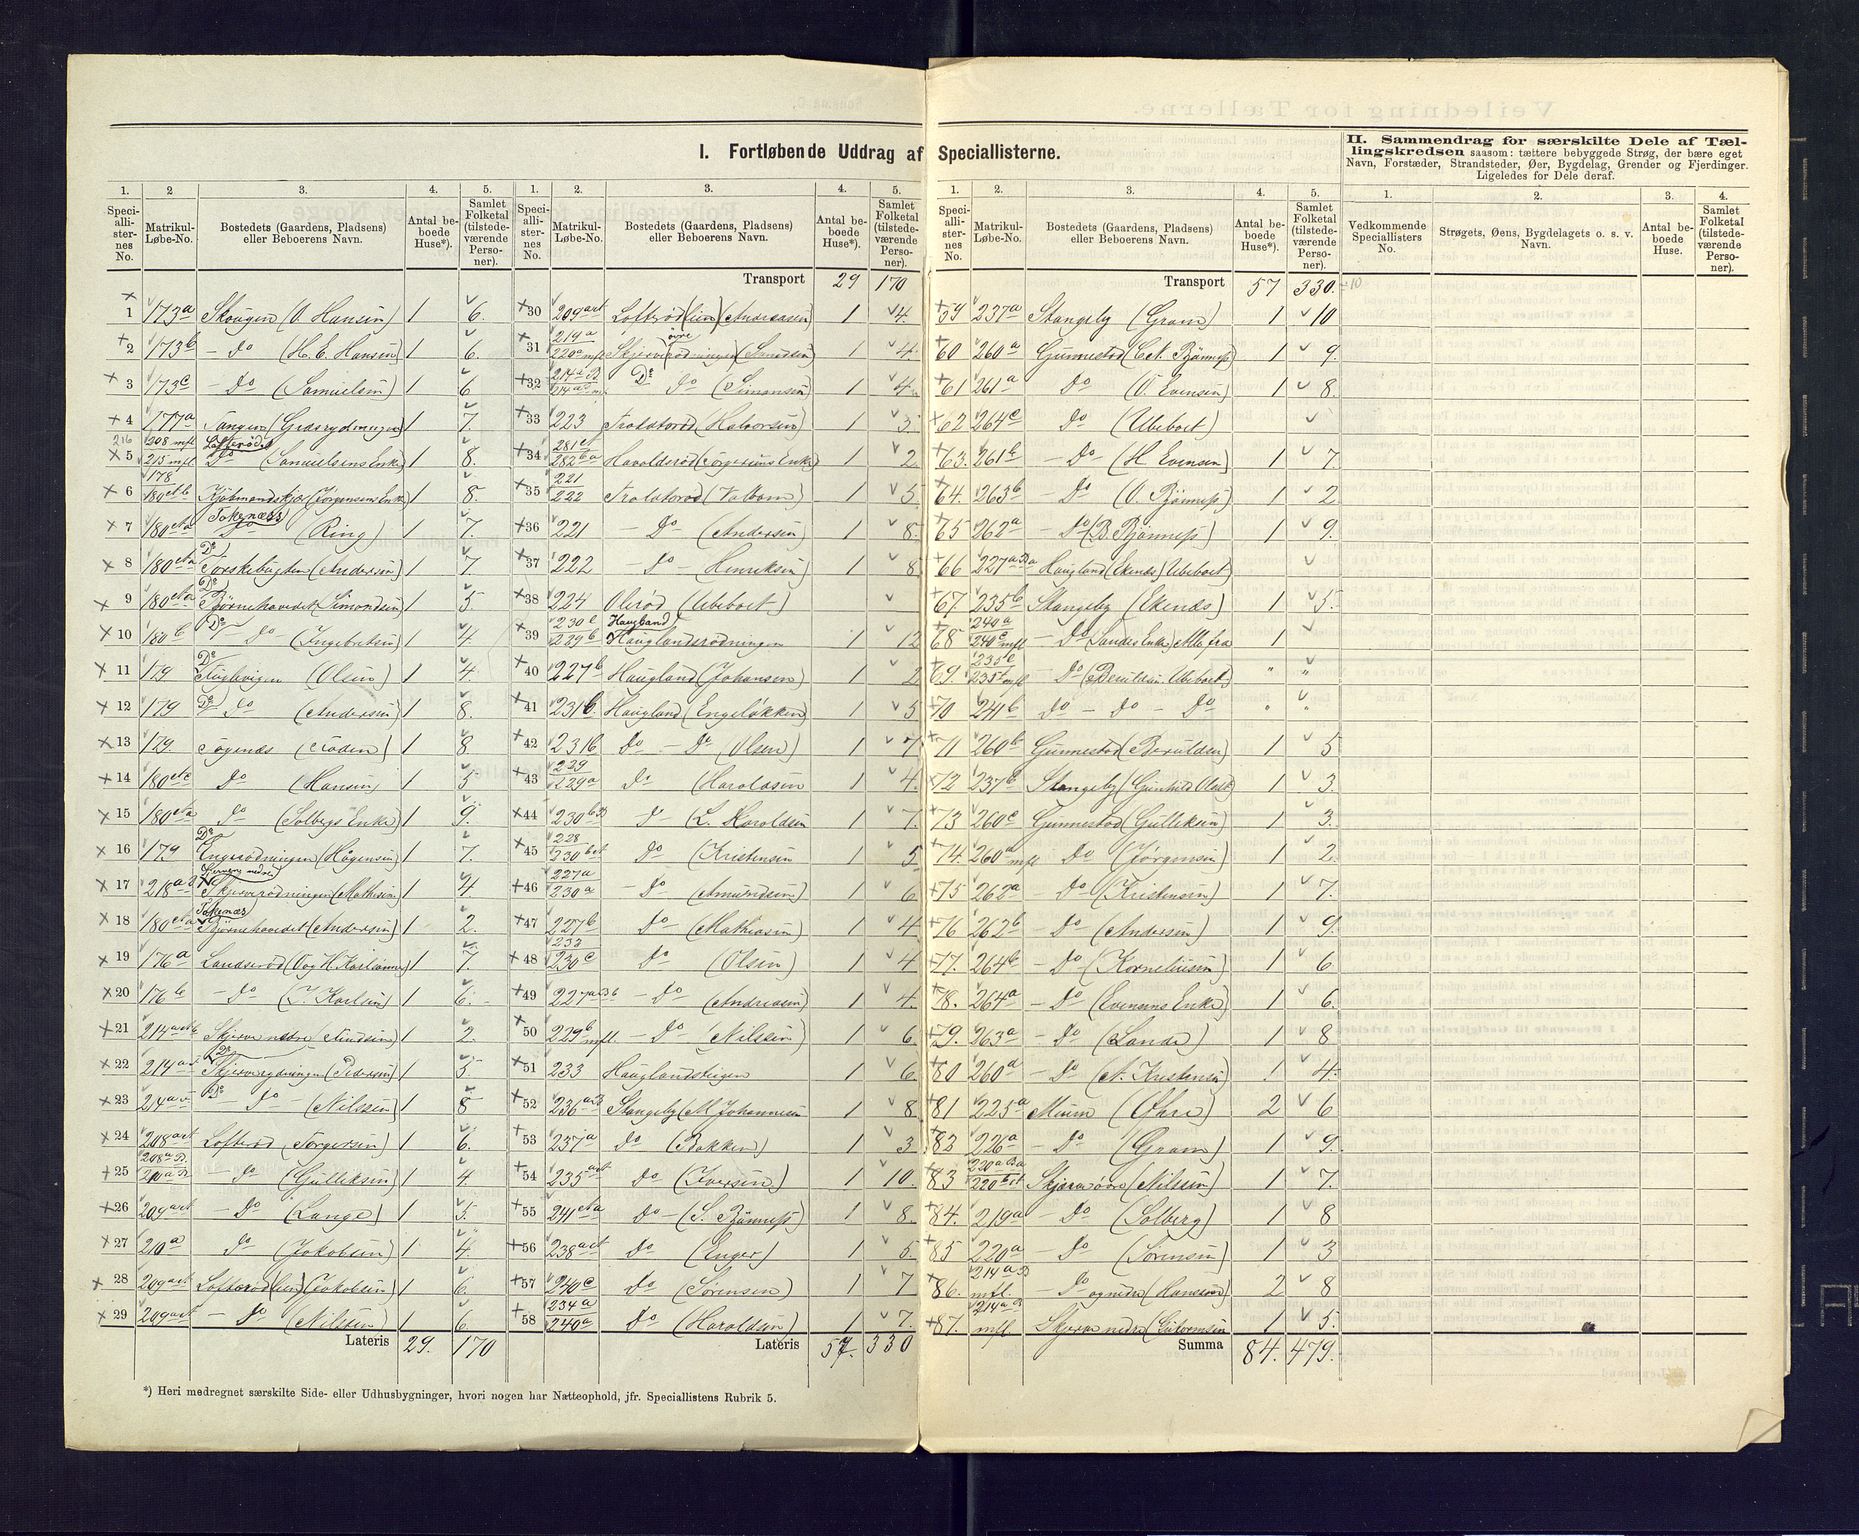 I. Fortløbende Uddrag af Speciallisterne.
II. Sammendrag for særskilte Dele af Tællingskredsen saasom: tættere bebyggede Strøg, der bære eget Navn, Forstæder, Strandsteder, Øer, Bygdelag, Grender og Fjerdinger. Ligeledes for Dele deraf.
1. 2 3. 4. 5.
Speciallisternes No. Matrikul-Løbe-No. Bostedets (Gaardens, Pladsens) eller Beboerens Navn. Antal beboede Huse*). Samlet Folketal (tilstedeværende Personer).
1 173a Skougen (O. Hansen) 1 6.
2 173b - Do (H. E. Hansen) 1 6.
3 173c - Do (Samuelsen) 1 6
4 177a Tangen (Græsrydningen) 1 7.
5 216 208 mfl 215 mfl Lofterød Do (Samuelsens Enke) 1 8.
6 178 Kjøbmandskjær (Jørgensens Enke) 1 8.
7 180 Tokenæs Do (Ring) 1 7.
8 180 Do Torskebugden (Andersen) 1 7
9 180 Do Bjørnehovedet (Simonsen) 1 5.
10 180b Do Do (Ingebretsen) 1 4.
11 179 Do Fuglevigen (Olsen) 1 4.
12 179 Do Do (Andersen) 1 8.
13 179. (Røden) 1 8
14 180 Do (Hansen) 1 5
15 180 Do (Solbergs Enke) 1 9.
16 179 Do Engerødningen (Hågensen) 1 7.
17 218a Skjerverødningen (Mathisen) 1 4
18 180 Tokenæs Bjørnehovedet (Andersen) 1 2.
19 176a Landserød 1 7.
20 176b - Do (J. Karlsen) 1 6.
21 214 Skjerve nedre 1 2.
22 214 Do Skjerverydningen (Pedersen) 1 5
23 214 Do - Do - (Nilssen) 1 8
24 208 Lofterød (Torgersen) 1 6.
25 - Do (Gulliksen) 1 4
26 209 - Do (Lange) 1 5.
27 210a Do (Jakobsen) 1 4.
28 209 Lofterød (lien) (Jakobsen) 1 6.
29 209 - Do (Nilssen) 1 6.
Lateris 29. 170
*) Heri medregnet særskilte Side- eller Udhusbygninger, hvori nogen har Natteophold, jfr. Speciallistens Rubrik 5.
1. 2. 3. 4. 5.
Speciallisternes No. Matrikul-Løbe-No. Bostedets (Gaardens, Pladsens) eller Beboerens Navn. Antal beboede Huse*). Samlet Folketal (tilstedeværende Personer).
Transport 29 170
30 209 Lofterød (lien) (Andreasen) 1 4.
31 219a 220a mfl Skjerve øvre rødningen 1 4.
32 Do Do (Simonsen) 1 4.
33 223 (Halvorsen) 1 3.
34 Havoldsrød (Jørgensens Enke) 1 2.
35 221 222 1 5
36 221 - Do (Andersen) 1 8.
37 222 - Do - Henriksen) 1 8
38 224 Olerød (Ubeboet)
39 230c 229b Haugland Hauglandsrødningen 1 12
40 227b Haugland (Johansen) 1 2
41 231b. Haugland (Engeløkken) 1 5
42 231b Do - Do (Olsen) 1 7
43 229 229a Do (Haroldsen 1 4.
44 230 Do (L. Haroldsen 1 7.
45 228 230 Do (Kristensen 1 5
46 227a 230a - Do (Amundsen) 1 6
47 227b Do (Mathiasen) 1 4
48 233 230c Do (Olsen) 1 4
49 227 - Do (Andreasen) 1 4.
50 229b mfl. - Do (Nilssen) 1 6.
51 233 Hauglandsteigen 1 6.
52 236 Stangeby (M. Johannesen 1 8.
53 237a Do (Bakken) 1 3.
54 235 Do (Iversen) 1 10.
55 241 Do - (S. Bjønness) 1 8.
56 238 Do (Enger) 1 5.
57 240c Do (Sørensen) 1 7
58 234a 240a Do (Haroldsen) 1 7.
Lateris 57. 330
1. 2. 3. 4. 5.
Speciallisternes No. Matrikul-Løbe-No. Bostedets (Gaardens, Pladsens) eller Beboerens Navn. Antal beboede Huse*). Samlet Folketal (tilstedeværende Personer).
Transport 57 330.
59 237a Stangeby (Gram) 1 10
60 260a Gunnestad (C.A. Bjønness) 1 9.
61 261a Do (O. Evensen) 1 8.
62 264c Do (Ubeboet)
63. 261b - Do (H. Evensen) 1 7.
64. 263b - Do (O. Bjønness) 1 2.
65 262a - Do (B. Bjønness) 1 9.
66 227 Haugland (Ekenæs) Ubeboet
67. 235b Stangeby (Ekenæs) 1 5.
68 240a 240c mfl - Do (Sandes Enke) 1
69. 235c 235 mfl - Do Ubeboet) " "
70 241b Do - Do - Do " "
71 260b Gunnestad (Berulden) 1 5
72 237b Stangeby (Gunhild Olsdt) 1 3.
73 260c Gunnestad (Gulliksen) 1 3.
74. 260a mfl Do (Jørgensen) 1 2.
75 262a - Do (Kristensen) 1 7.
76 262b - Do (Andersen) 1 9.
77. 264b - Do (Korneliusen) 1 6.
78. 264a - Do (Evensens Enke) 1 6.
79. 263a - Do (Lande) 1 8
80 260a - Do (A. Kristensen) 1 4.
81 225a Mum (Øhre) 2 6
82 226a - Do (Gram) 1 9.
83 220 Skjerve øvre (Nilssen) 1 7.
84. 219a - Do (Solberg) 1 8
85 220a - Do (Sørensen) 1 3
86. 214a mfl. - Do og nedre (Hanssen) 2 8
87. 214a mfl. Skjerve nedre (Guttormsen 1 5.
Summa 84. 479.
1. 2. 3. 4.
Vedkommende Speciallisters No. Strøgets, Øens, Bygdelagets o. s. v. Navn. Antal beboede Huse. Samlet Folketal (tilstedeværende Personer).